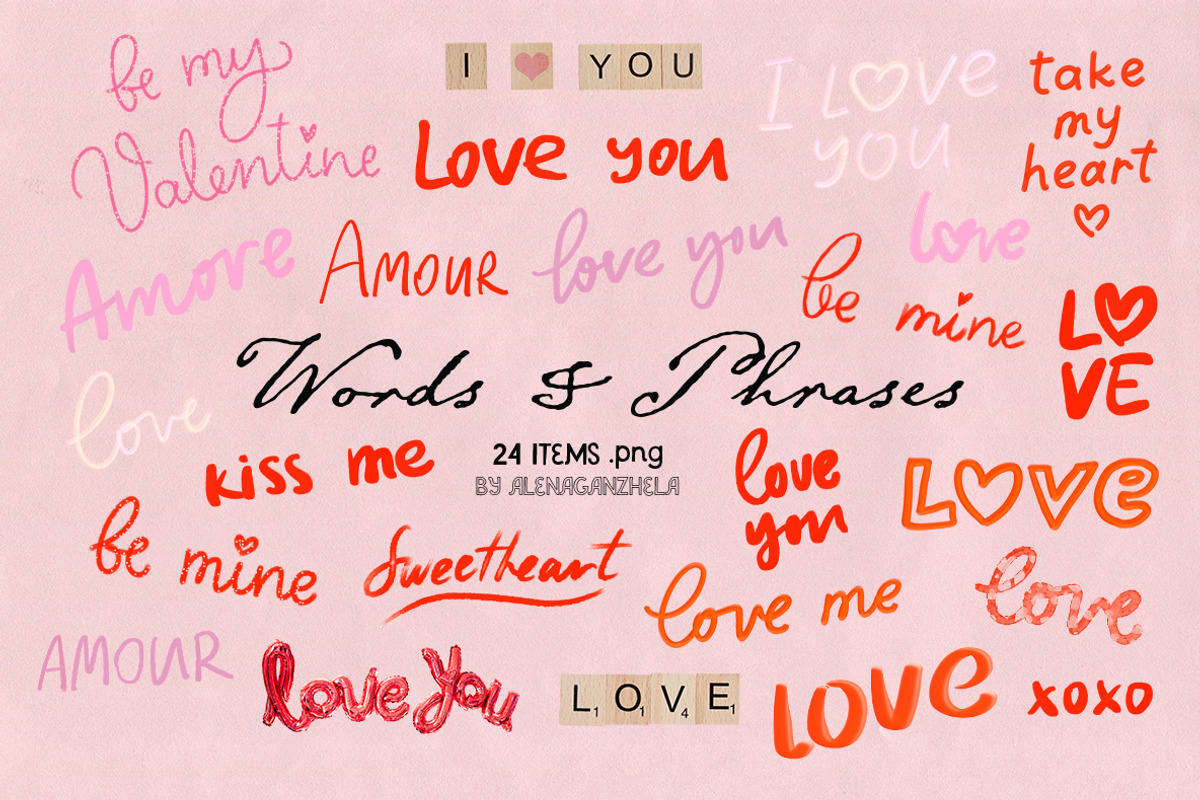 be my
Valentine
I ♥ YOU
Love you
I LOVE
you
take
my
heart
Amore
AMOUR
love you
love
be
mine
LO
VE
love
Words & Phrases
24 ITEMS .png
BY ALENAGANZHELA
kiss me
love
you
LOVE
be mine
Sweetheart
love me
love
AMOUR
love you
L1 O1 V4 E1
love
xoxo